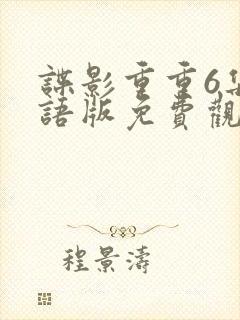 諜影重重6集
語版免費觀
程景濤